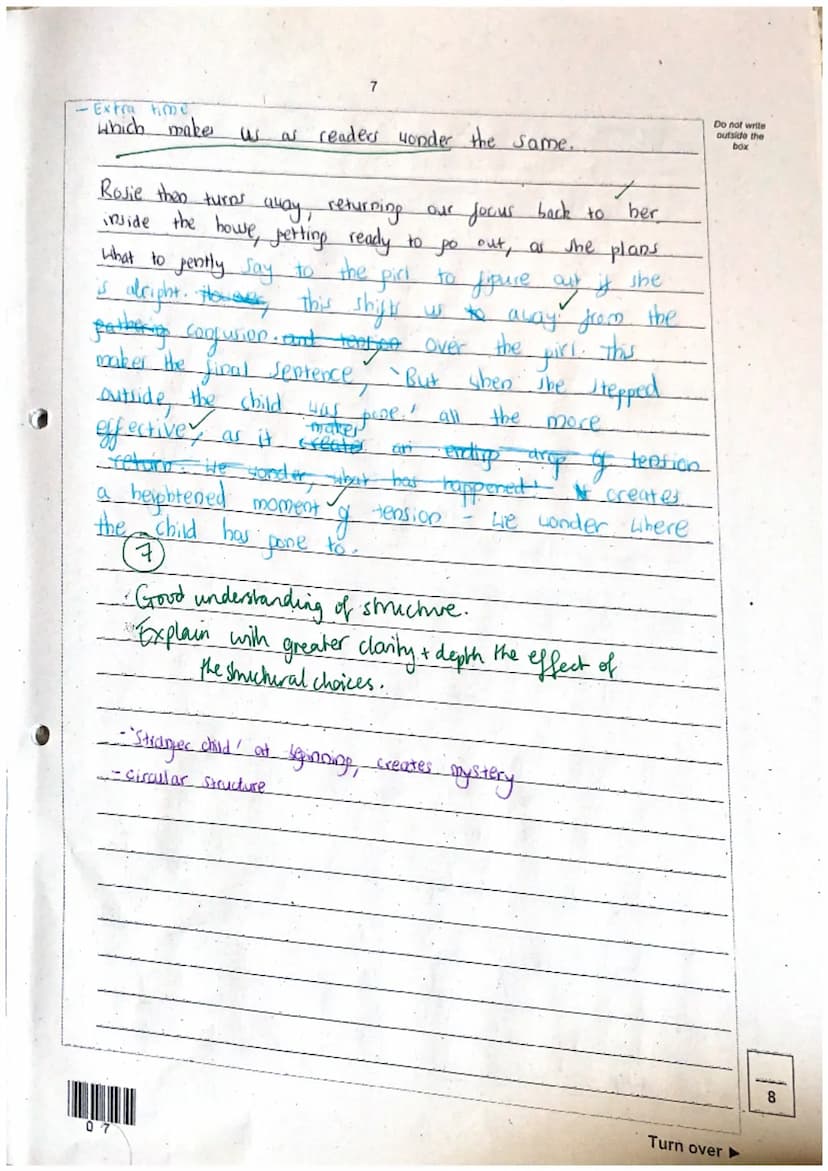 7
Do not write
outside the
box
- Extra time
which makes us as readers wonder the same.
Rosie then turns away, returning our focus back to her
inside the house, getting ready to go out, as she plans
what to gently say to the girl to figure out if she
is alright. However, this shifts us to away from the
gathering confusion. and tension over the girl. This
makes the final sentence, 'But when she stepped
outside, the child was gone.' all the more
effective, as it creates makes an ending drop of tension
return. We wonder, what has happened? creates
a heightened moment of tension - we wonder where
the child has gone to.
7
· Good understanding of structure.
· Explain with greater clarity + depth the effect of
the structural choices.
- 'Stranger child' at beginning, creates mystery
- circular structure
8
07
Turn over ►